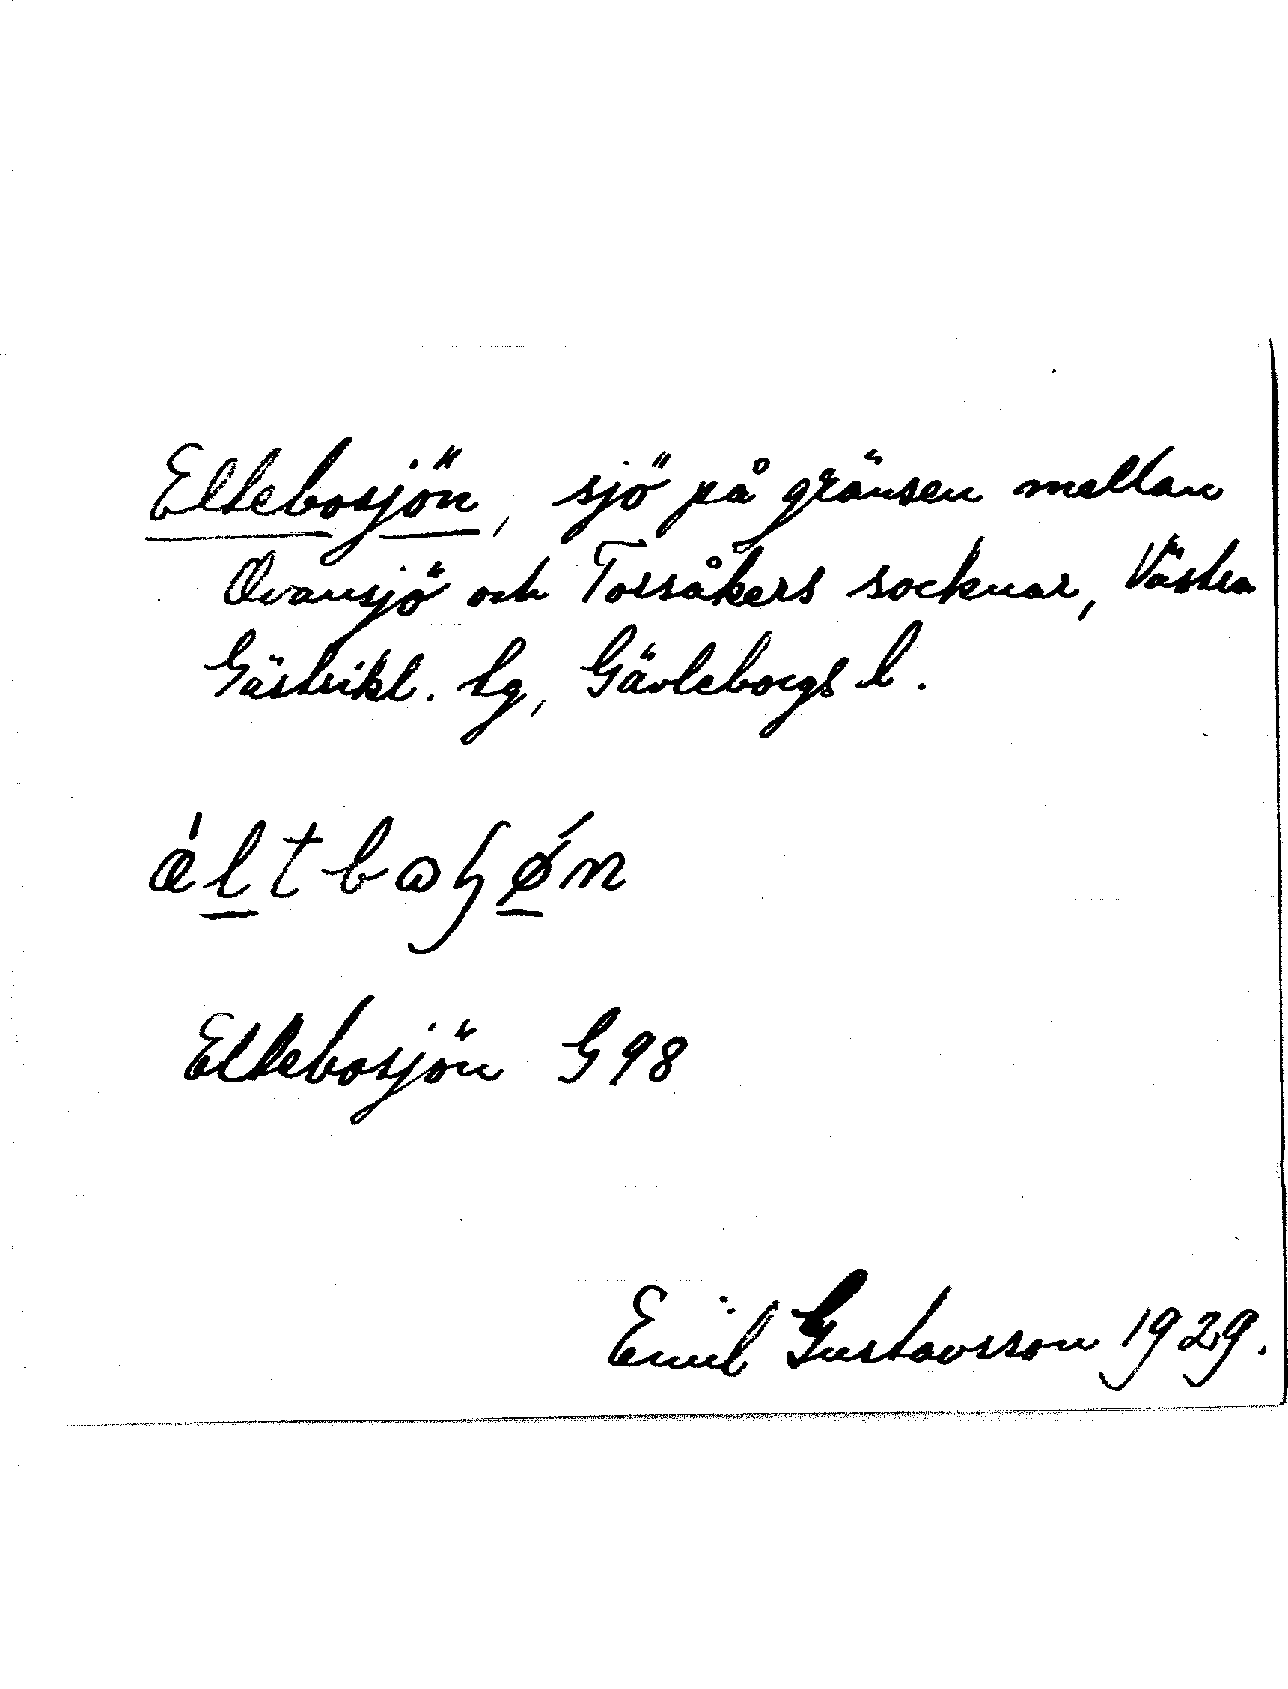 Eltebosjön, sjö på gränsen mellan
Ovansjö och Torsåkers socknar, Västra
Gästrikl. hg, Gävleborgs l.
Eltebosjön G98
Emil Gustavsson 1929.